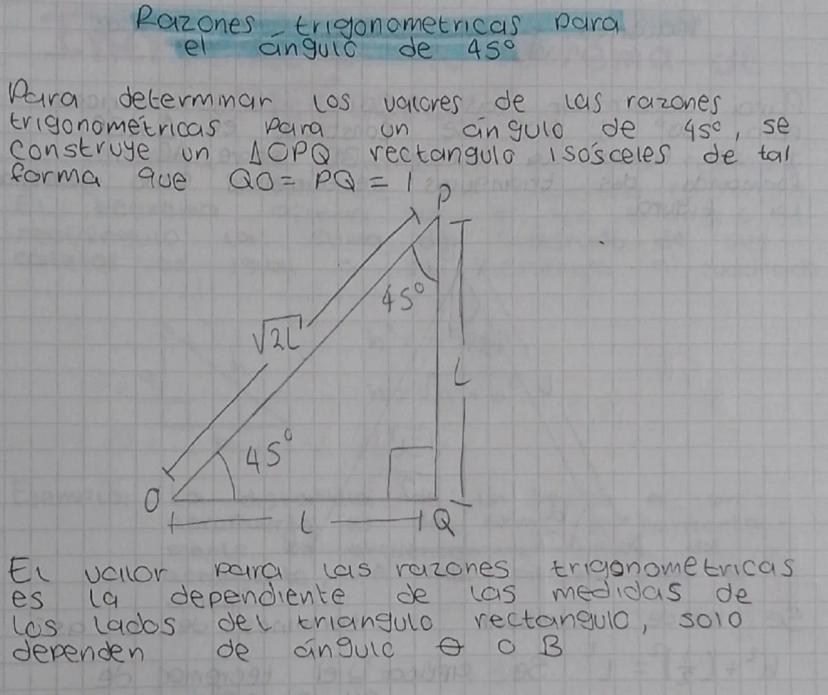 Razones trigonometricas para
el ángulo de 45°
Para determinar los valores de las razones
trigonometricas para un ángulo de 45°, se
construye un ΔOPQ rectangulo isósceles de tal
forma que QO = PQ = l
P
45°
√2L
L
45°
O
L
Q
El valor para las razones trigonometricas
es la dependiente de las medidas de
los lados del triangulo rectangulo, solo
dependen de ángulo θ o B